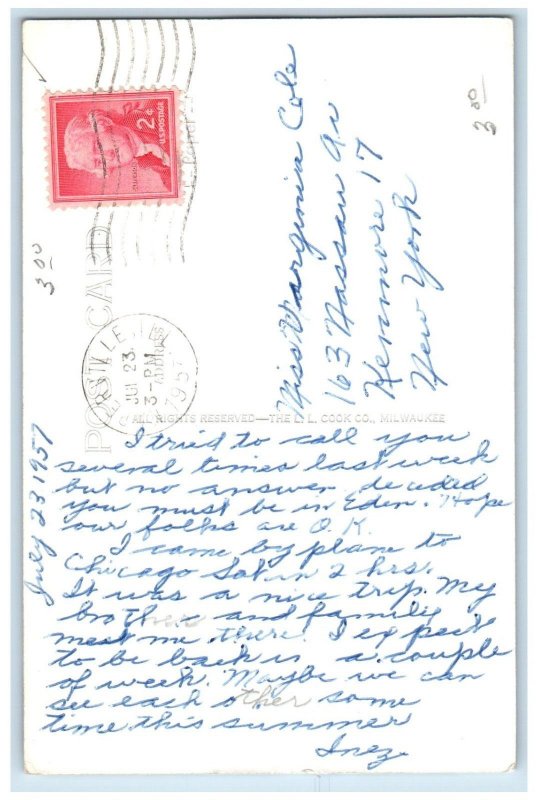 2¢
U.S. POSTAGE
3 00
3 00
POST CARD
JUL 23
3-PM
1957
Miss Virginia Cole
163 Nassau Av
Kenmore 17
New York
ALL RIGHTS RESERVED—THE L. L. COOK CO., MILWAUKEE
July 23 1957
I tried to call you
several times last week
but no answer decided
you must be in Eden. Hope
our folks are O.K.
I came by plane to
Chicago Sat in 2 hrs.
It was a nice trip. My
brother and family
meet me there. I expect
to be back in a couple
of week. Maybe we can
see each other some
time this summer
Inez